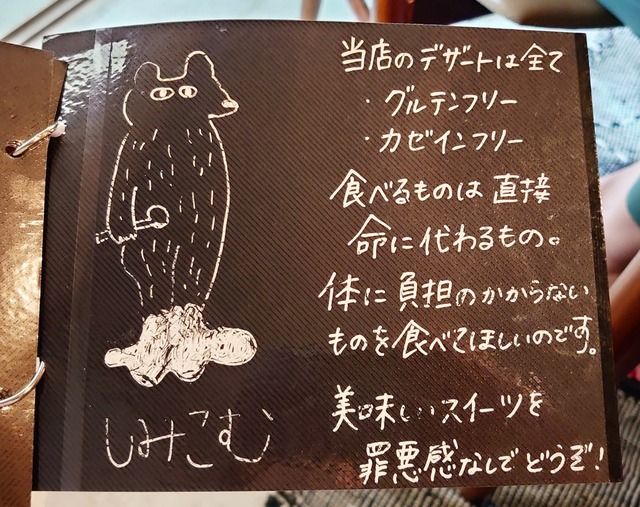 当店のデザートは全て
・グルテンフリー
・カゼインフリー
食べるものは直接
命に代わるもの。
体に負担のかからない
ものを食べてほしいのです。
美味しいスイーツを
罪悪感なしでどうぞ!
しみこむ